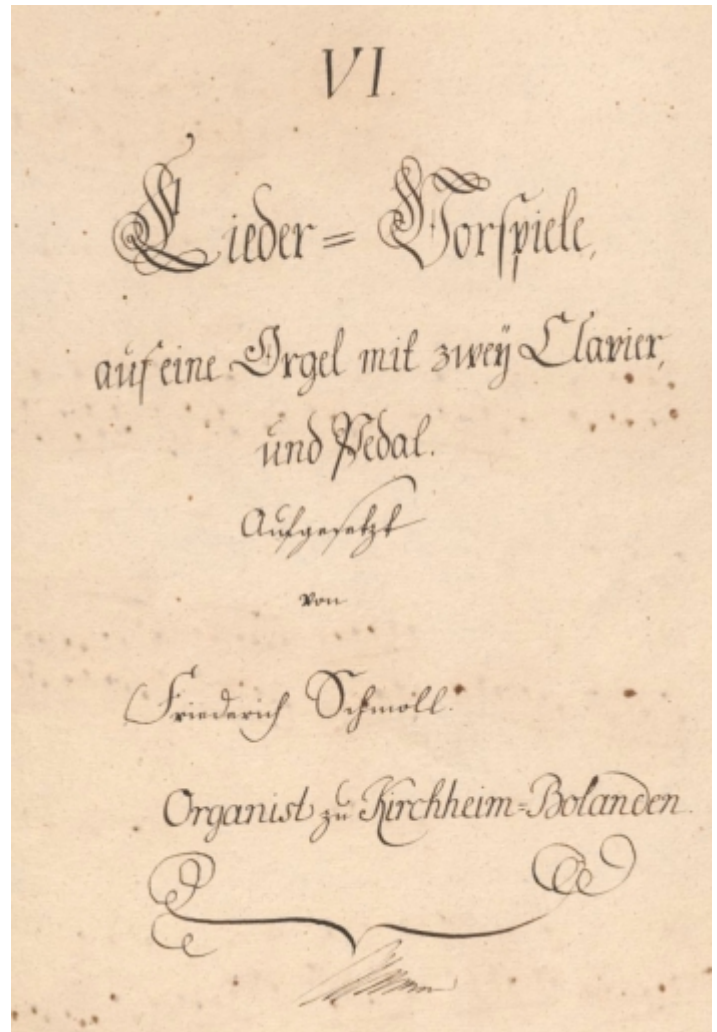 VI.
Lieder=Vorspiele,
auf eine Orgel mit zweÿ Clavier,
und Pedal.
Aufgesetzt
von
Friederich Schmoll.
Organist zu Kirchheim=Bolanden.